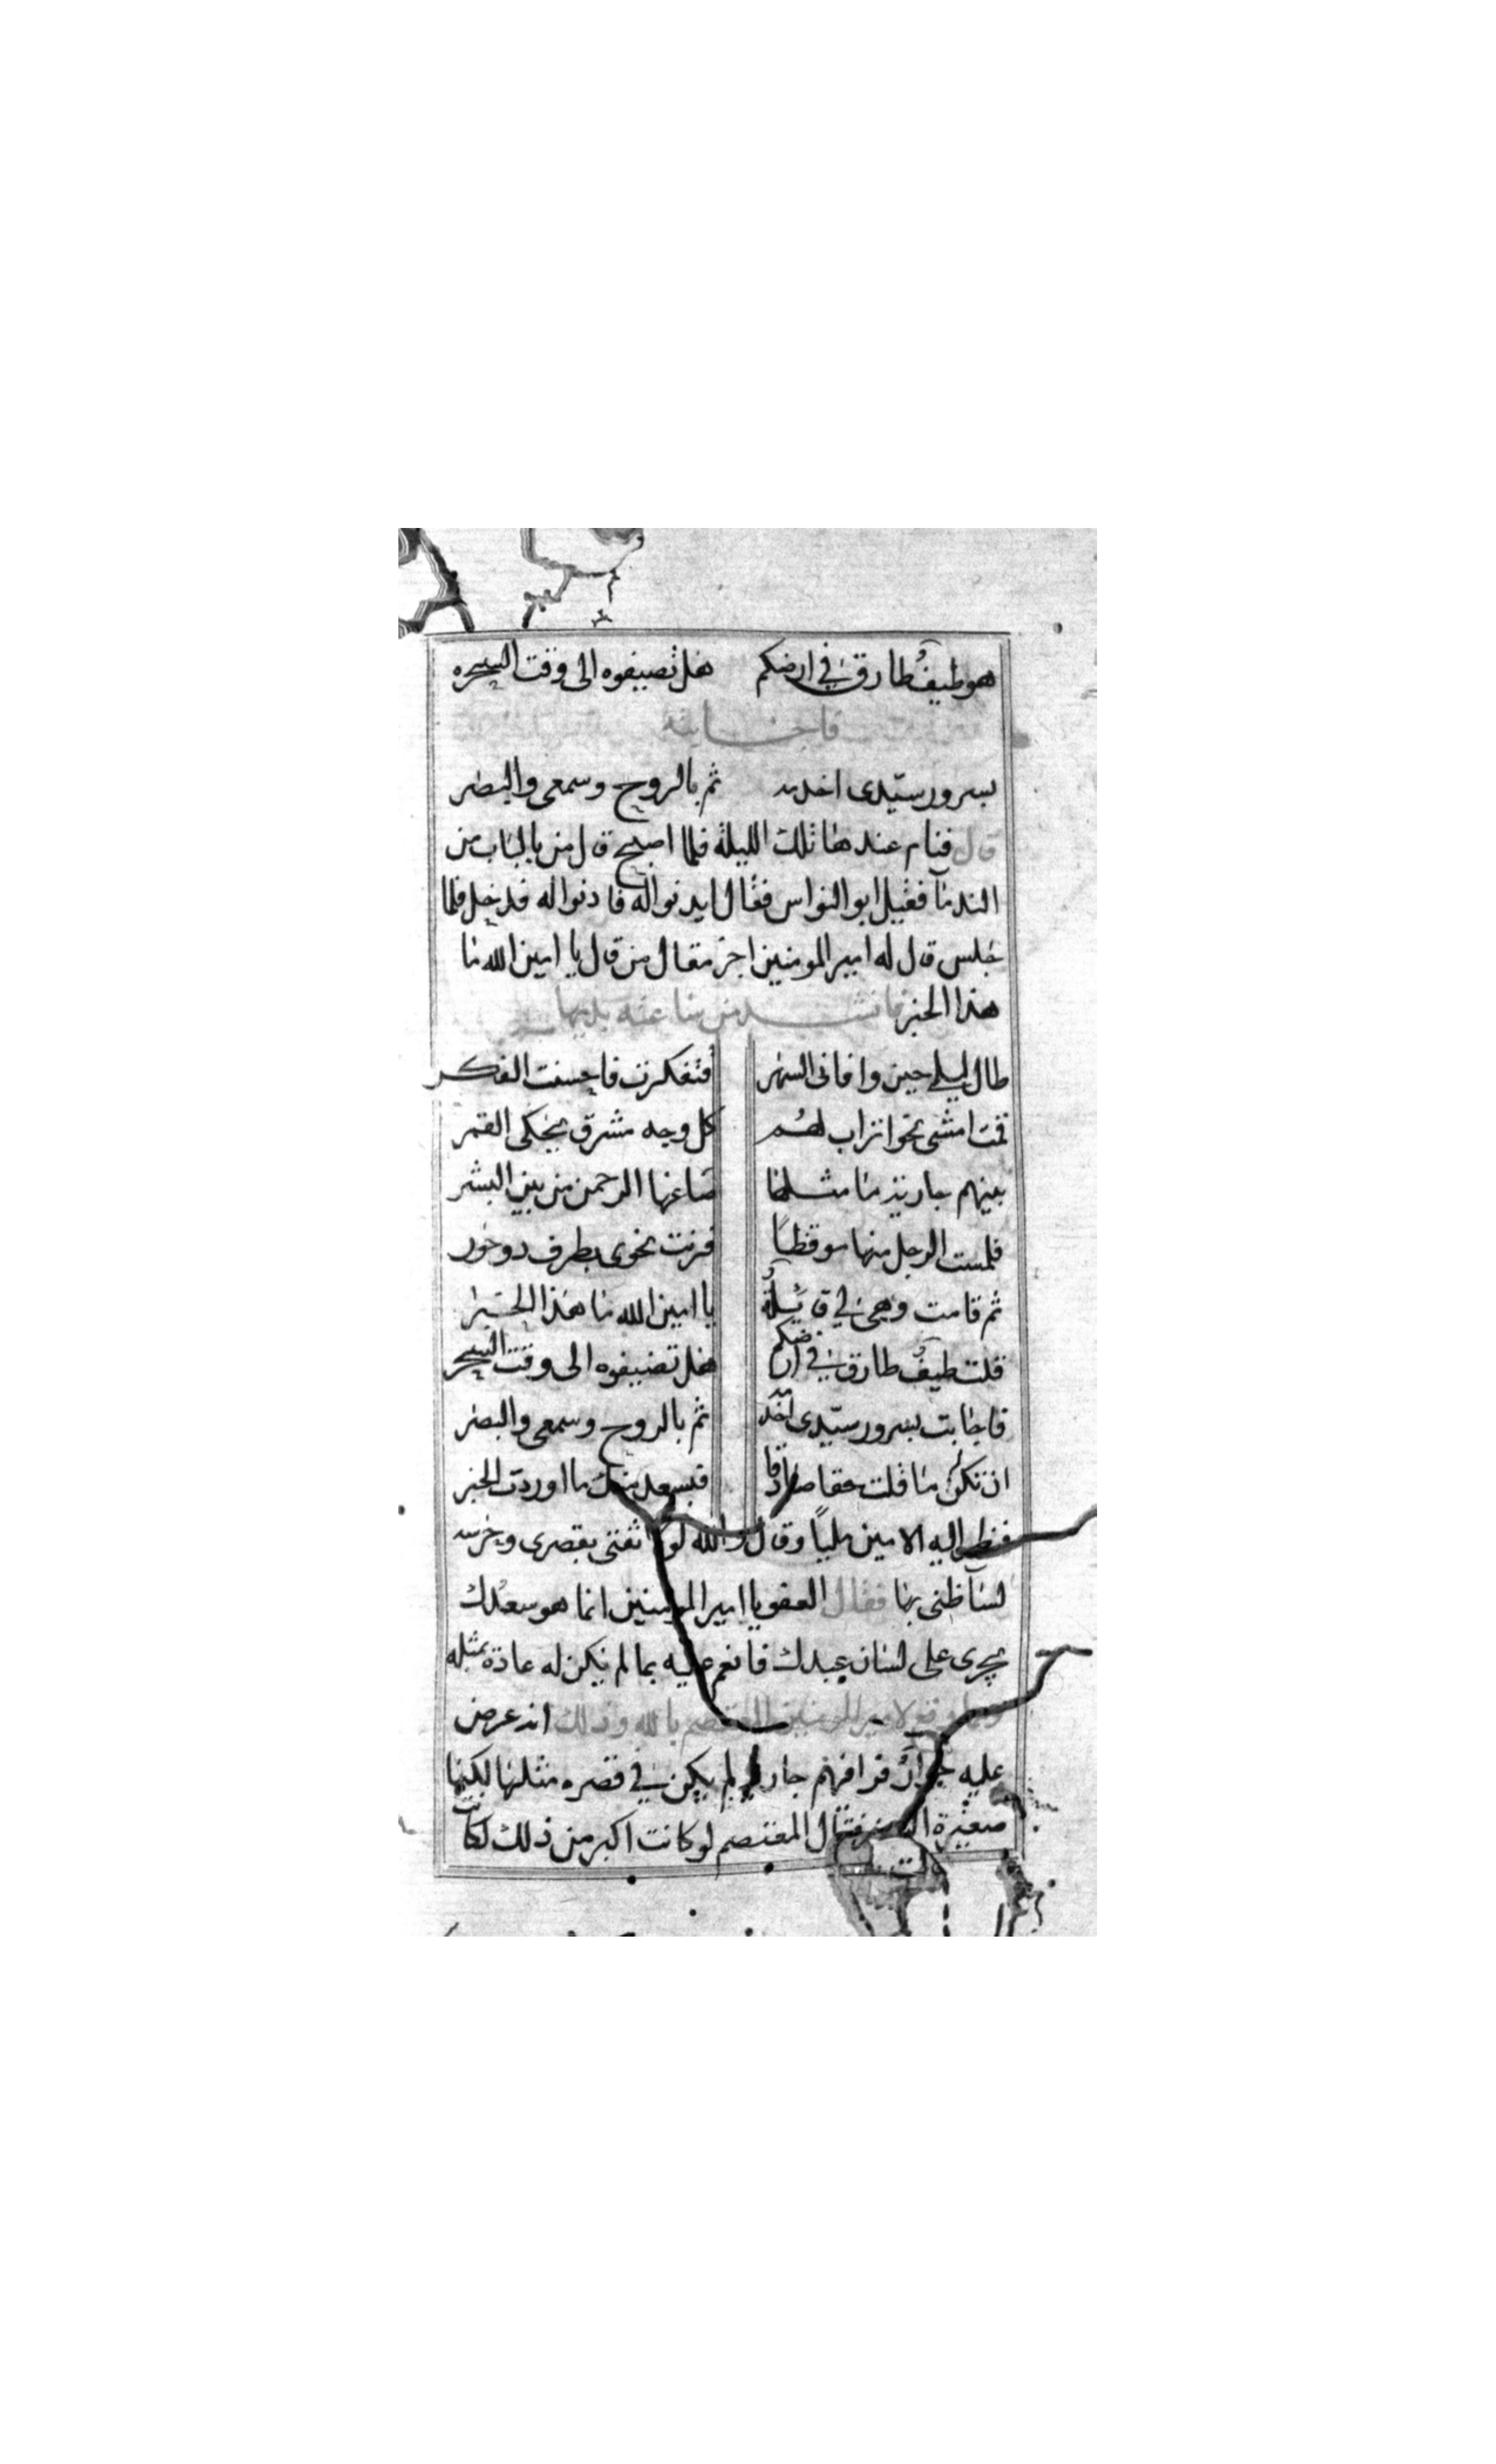 هو طيف طارق في ارضكم هل تضيفوه الى وقت السحره
فاجابته
بسرور سيدى اخدمه ثم بالروح وسمعى والبصر
قال فنام عندها تلك الليلة فلما اصبح قال من بالباب من
الندمآ فقيل ابو النواس فقال ايدنوا له فادنوا له فدخل فلما
جلس قال له امير المومنين اجز مقال من قال يا امين الله ما
هذا الخبر فانشد من عنه بديها
طال ليلى حين وافانى السهر فتفكرت فاحسنت الفكر
قمت امشى نحو اتراب لهم كل وجه مشرق يحكى القمر
بينهم جارية ما مثلها صاغها الرحمن من بين البشر
فلمست الرجل منها موقظا فرنت نحوى بطرف ذو حور
ثم قامت وهى لى قايلة يا امين الله ما هذا الخبر
قلت طيف طارق في ارضكم هل تضيفوه الى وقت السحر
فاجابت بسرور سيدى اخدمه ثم بالروح وسمعى والبصر
ان تكن ما قلت حقا صادقا فبسعد منك ما اوردت الخبر
فنظر اليه الامين مليا وقال والله لو بقصرى
لسآ ظنى بها فقال العفو يا امير المومنين انما هو سعدك
يجرى على لسان عبدك فانعم عليه بما لم يكن له عادة بمثله
لامير المومنين المعتصم بالله وذلك انه عرض
عليه جوار فيهم جاريه لم يكن في قصره مثلها لكنها
صغيرة السن فقال المعتصم لو كانت اكبر من ذلك لكانت